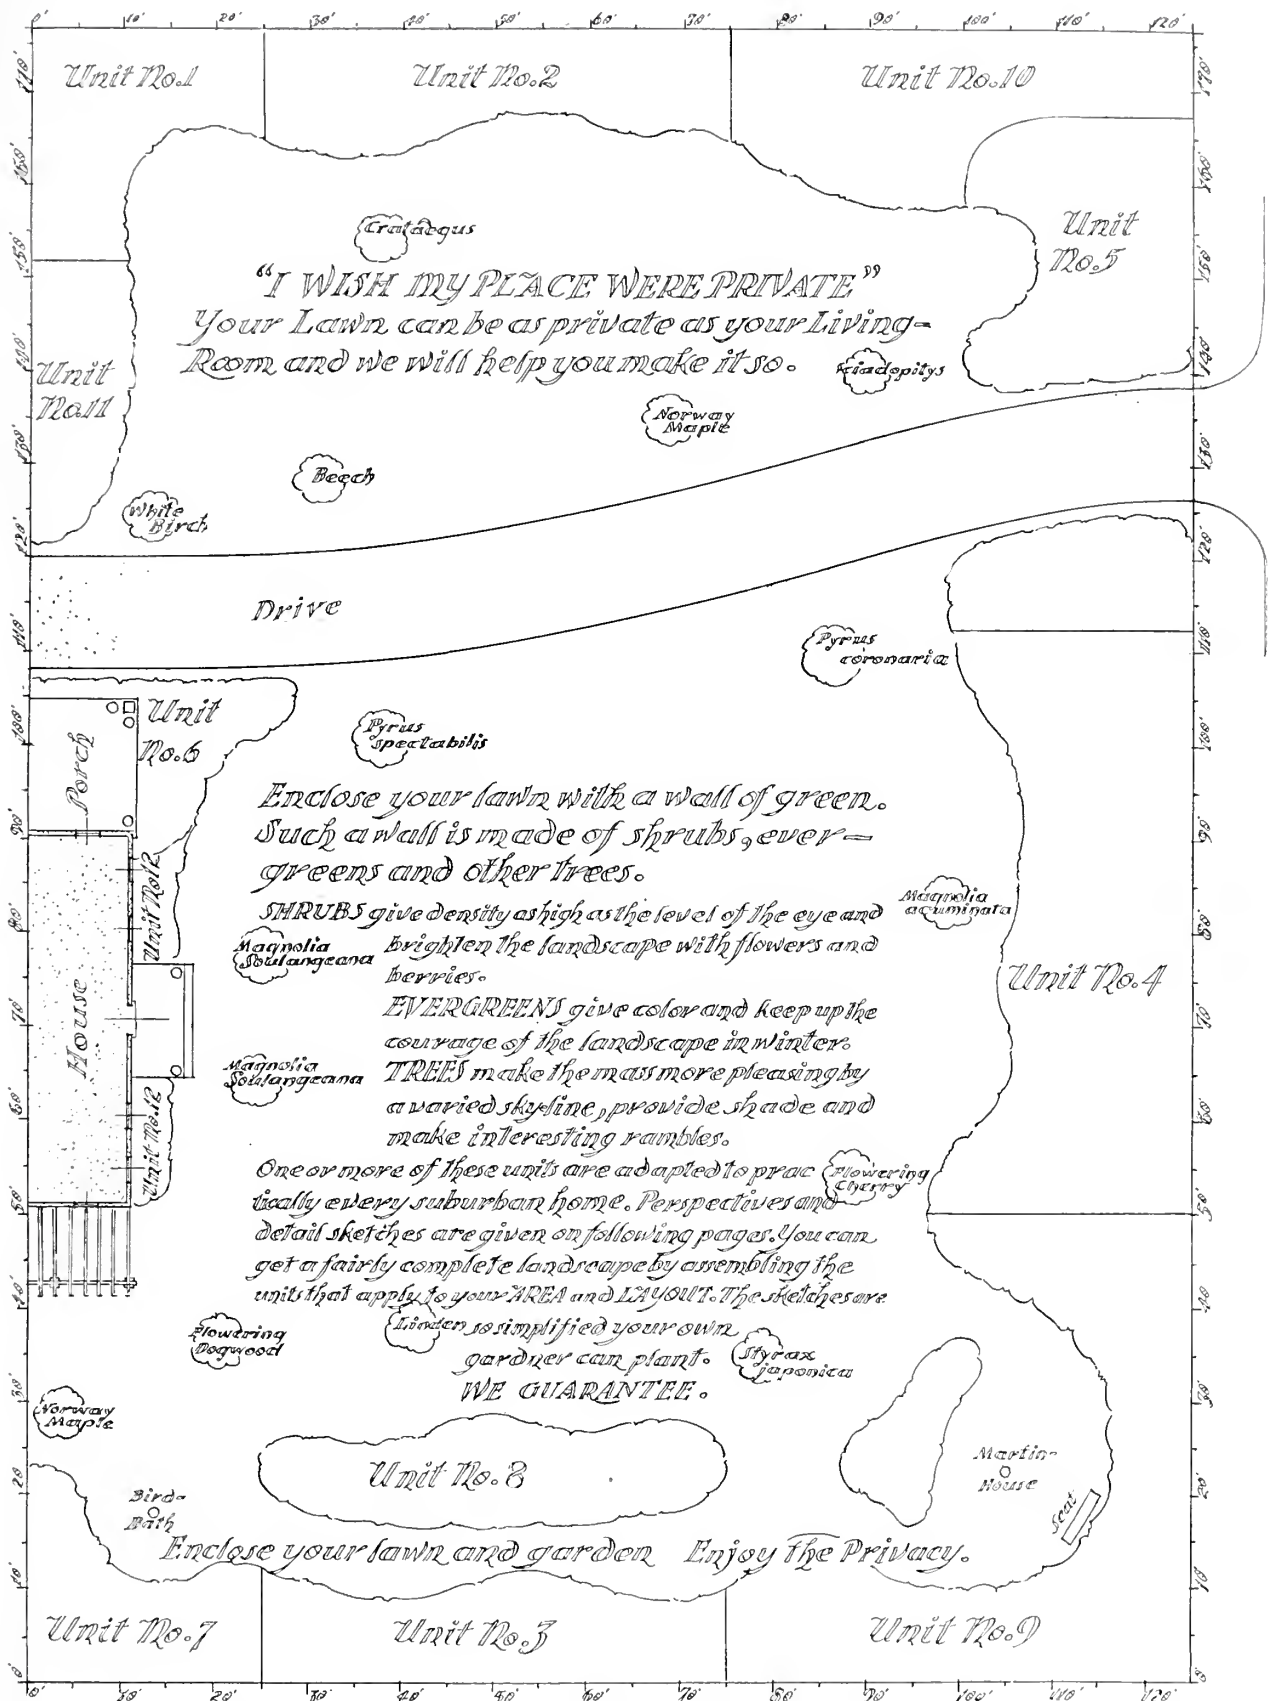 0' 10' 20' 30' 40' 50' 60' 70' 80' 90' 100' 110' 120'
Unit No.1
Unit No.2
Unit No.10
Crataegus
Unit
No.5
"I WISH MY PLACE WERE PRIVATE"
Your Lawn can be as private as your Living-
Room and we will help you make it so.
Unit
No.11
Norway
Maple
Beech
White
Birch
Drive
Pyrus
coronaria
Unit
No.6
Porch
Pyrus
spectabilis
Enclose your lawn with a wall of green.
Such a wall is made of shrubs, ever-
greens and other trees.
Unit No.12
Magnolia
acuminata
SHRUBS give density as high as the level of the eye and
brighten the landscape with flowers and
berries.
Magnolia
Soulangeana
Unit No.4
House
EVERGREENS give color and keep up the
courage of the landscape in winter.
Magnolia
Soulangeana
TREES make the mass more pleasing by
a varied sky-line, provide shade and
make interesting rambles.
Unit No.12
Flowering
Cherry
One or more of these units are adapted to prac
tically every suburban home. Perspectives and
detail sketches are given on following pages. You can
get a fairly complete landscape by assembling the
units that apply to your AREA and LAYOUT. The sketches are
so simplified your own
gardner can plant.
WE GUARANTEE.
Flowering
Dogwood
Linden
Styrax
japonica
Norway
Maple
Unit No.8
Martin-
House
Seat
Bird-
Bath
Enclose your lawn and garden Enjoy the Privacy.
Unit No.7
Unit No.3
Unit No.9
0' 10' 20' 30' 40' 50' 60' 70' 80' 90' 100' 110' 120'